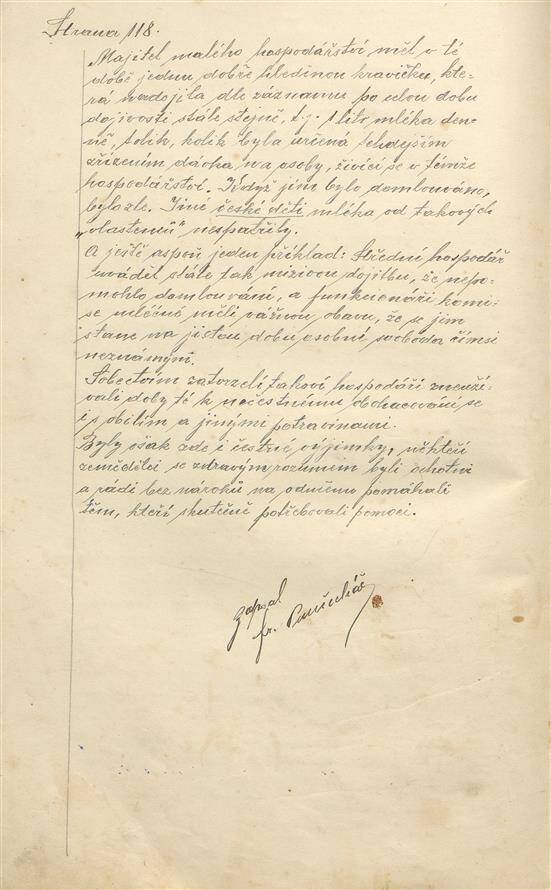 Strana 118.
Majitel malého hospodářství měl v té
době jednu dobře hleděnou kravičku, kte-
rá nadojila dle záznamu po celou dobu
dojivosti stále stejně, t.j. 1 litr mléka den-
ně, tolik, kolik byla určená tehdejším
zřízením dávka na osoby, živící se v témže
hospodářství. Když jim bylo domlouváno,
bylo zle. Jiné české děti mléka od takových
„vlastenců" nespatřily.
A ještě aspoň jeden příklad: Střední hospodář
uváděl stále tak nízkou dojitbu, že nepo-
mohlo domlouvání, a funkcionáři komi-
se mléčné měli vážnou obavu, že se jim
stane na jistou dobu osobní svoboda čímsi
neznámým.
Sobectvím zatvrzelí takoví hospodáři zneuží-
vali doby té k nečestnému obohacování se
i s obilím a jinými potravinami.
Byly však zde i čestné výjimky, někteří
zemědělci se zdravým rozumem byli ochotni
a rádi bez nároků na odměnu pomáhali
těm, kteří skutečně potřebovali pomoci.
Zapsal
fr.